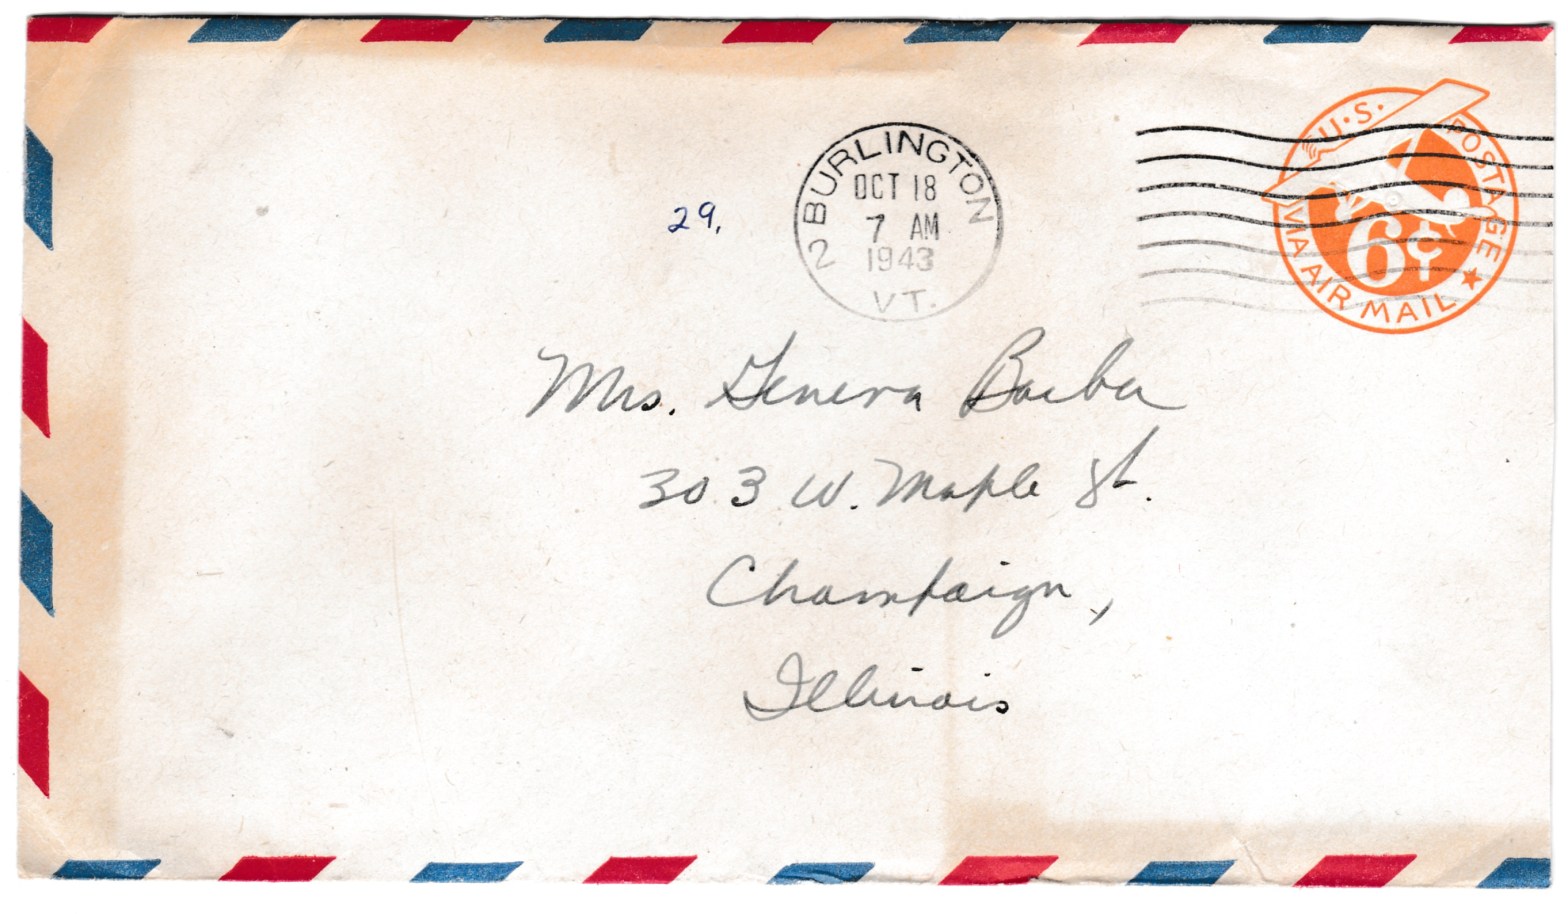 U.S. POSTAGE
VIA AIR MAIL
6¢
BURLINGTON
2
OCT 18
7 AM
1943
VT.
29.
Mrs. Geneva Barber
303 W. Maple St.
Champaign,
Illinois